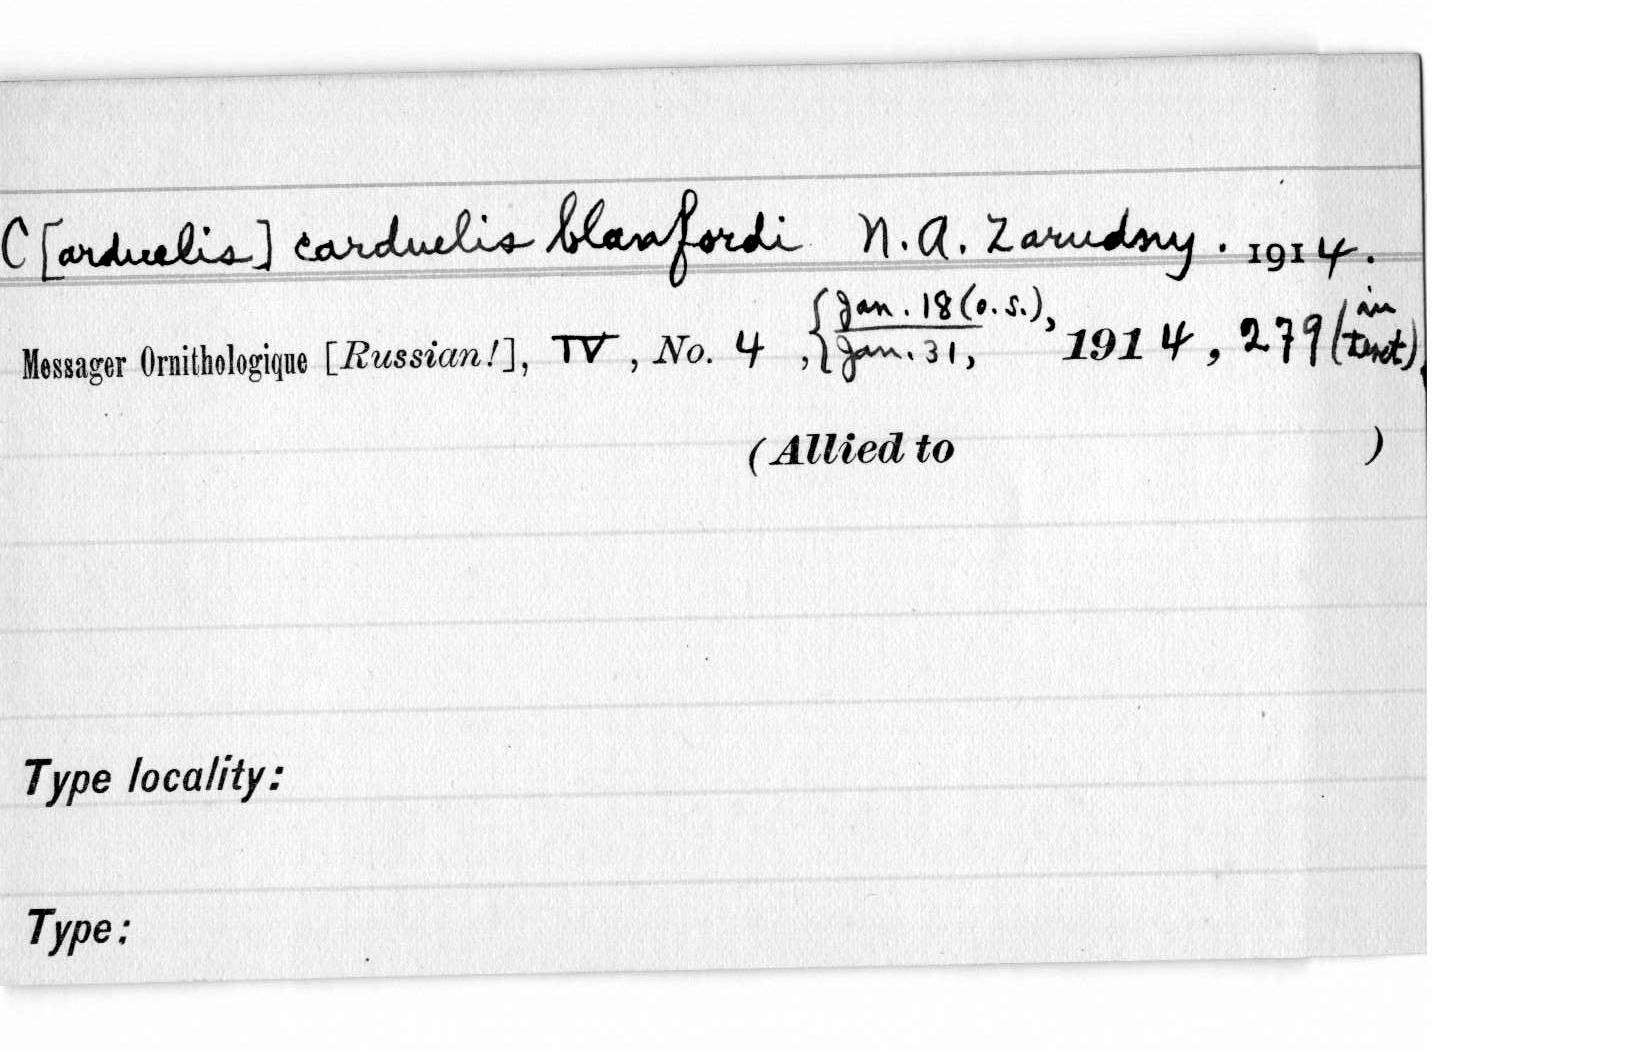 C[arduelis] carduelis blanfordi N.A. Zarudny. 1914.
Messager Ornithologique [Russian!], IV, No. 4, {Jan. 18 (o.s.), Jan. 31, 1914, 279 (in text)
(Allied to )
Type locality:
Type: